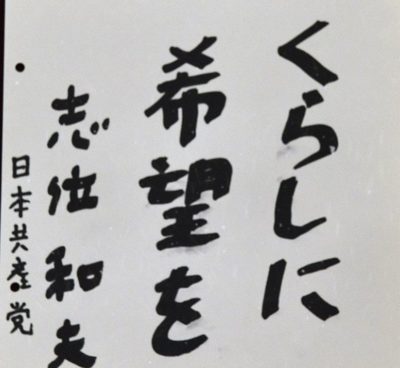 くらしに
希望を
志位和夫
日本共産党